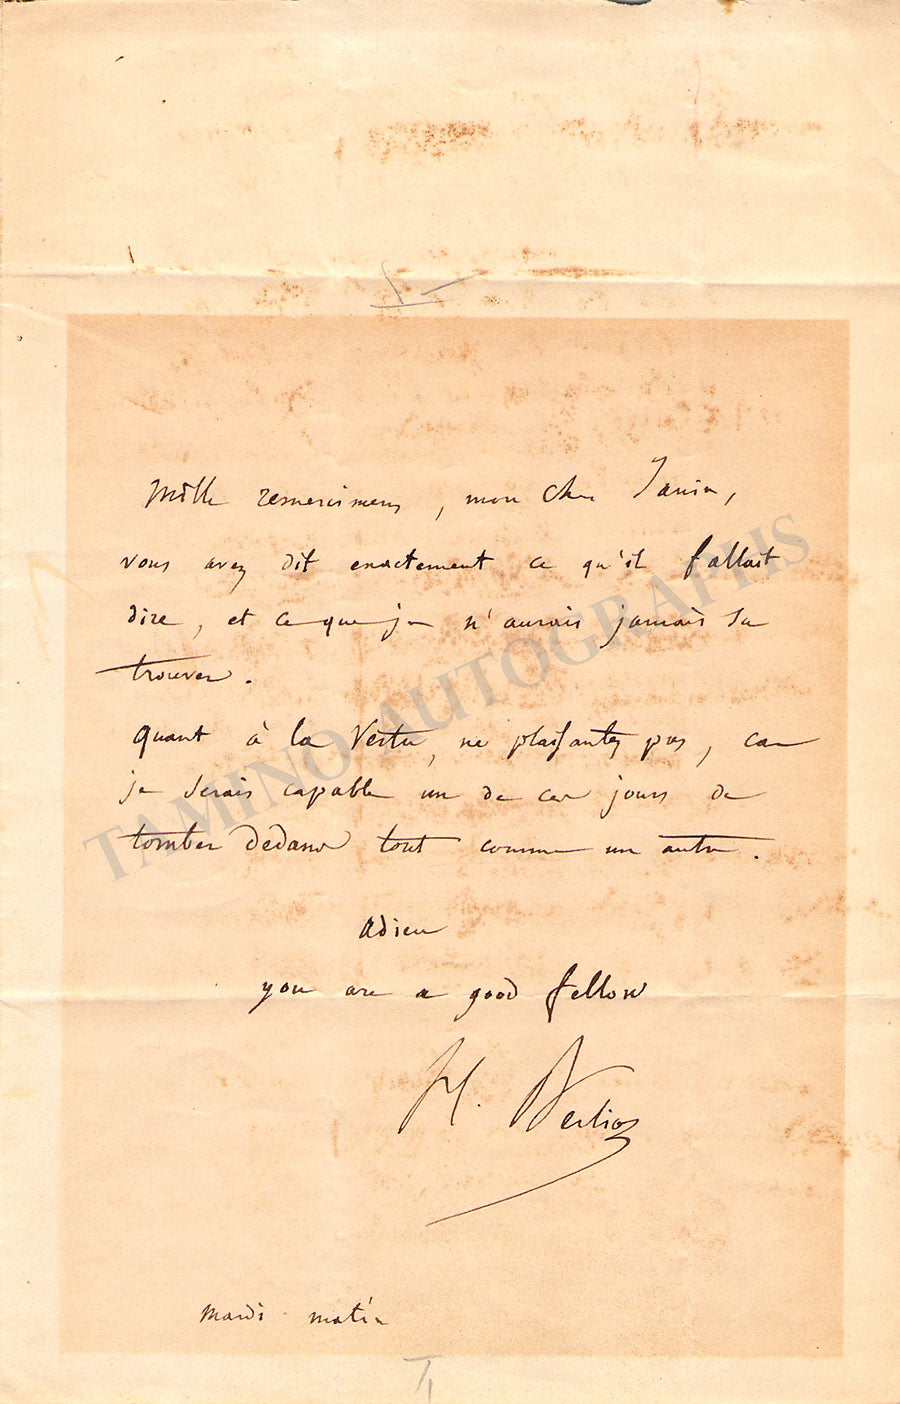 Mille remercimens, mon cher Janin,
vous avez dit exactement ce qu'il fallait
dire, et ce que je n'aurais jamais su
trouver.
Quant à la Vertu, ne plaisantez pas, car
je serais capable un de ces jours de
tomber dedans tout comme un autre.
adieu
you are a good fellow
H. Berlioz
mardi matin
TAMINO AUTOGRAPHS